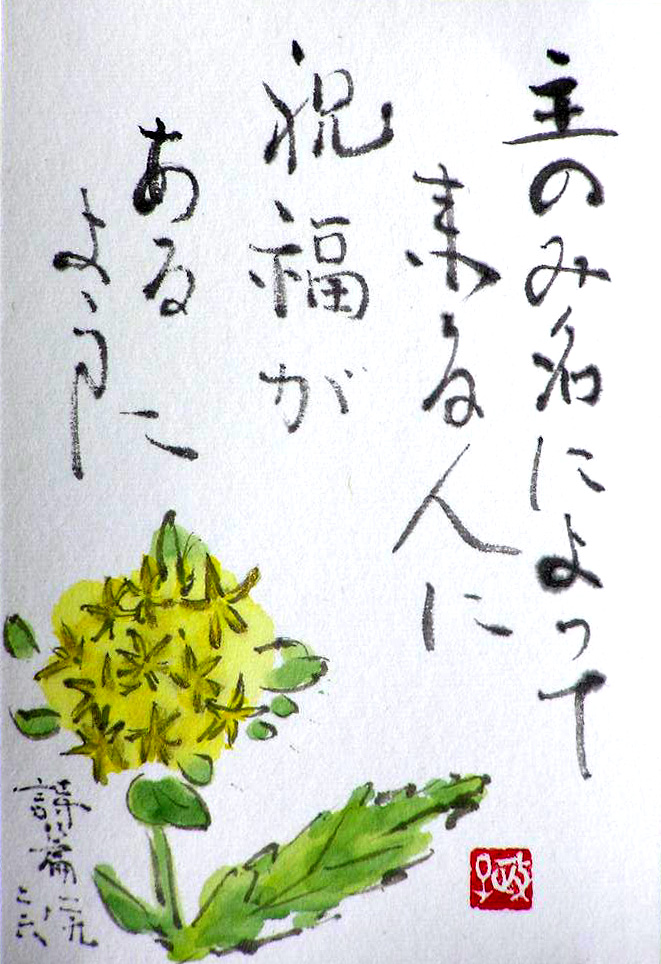 主のみ名によって
来る人に
祝福が
ある
ように
詩篇